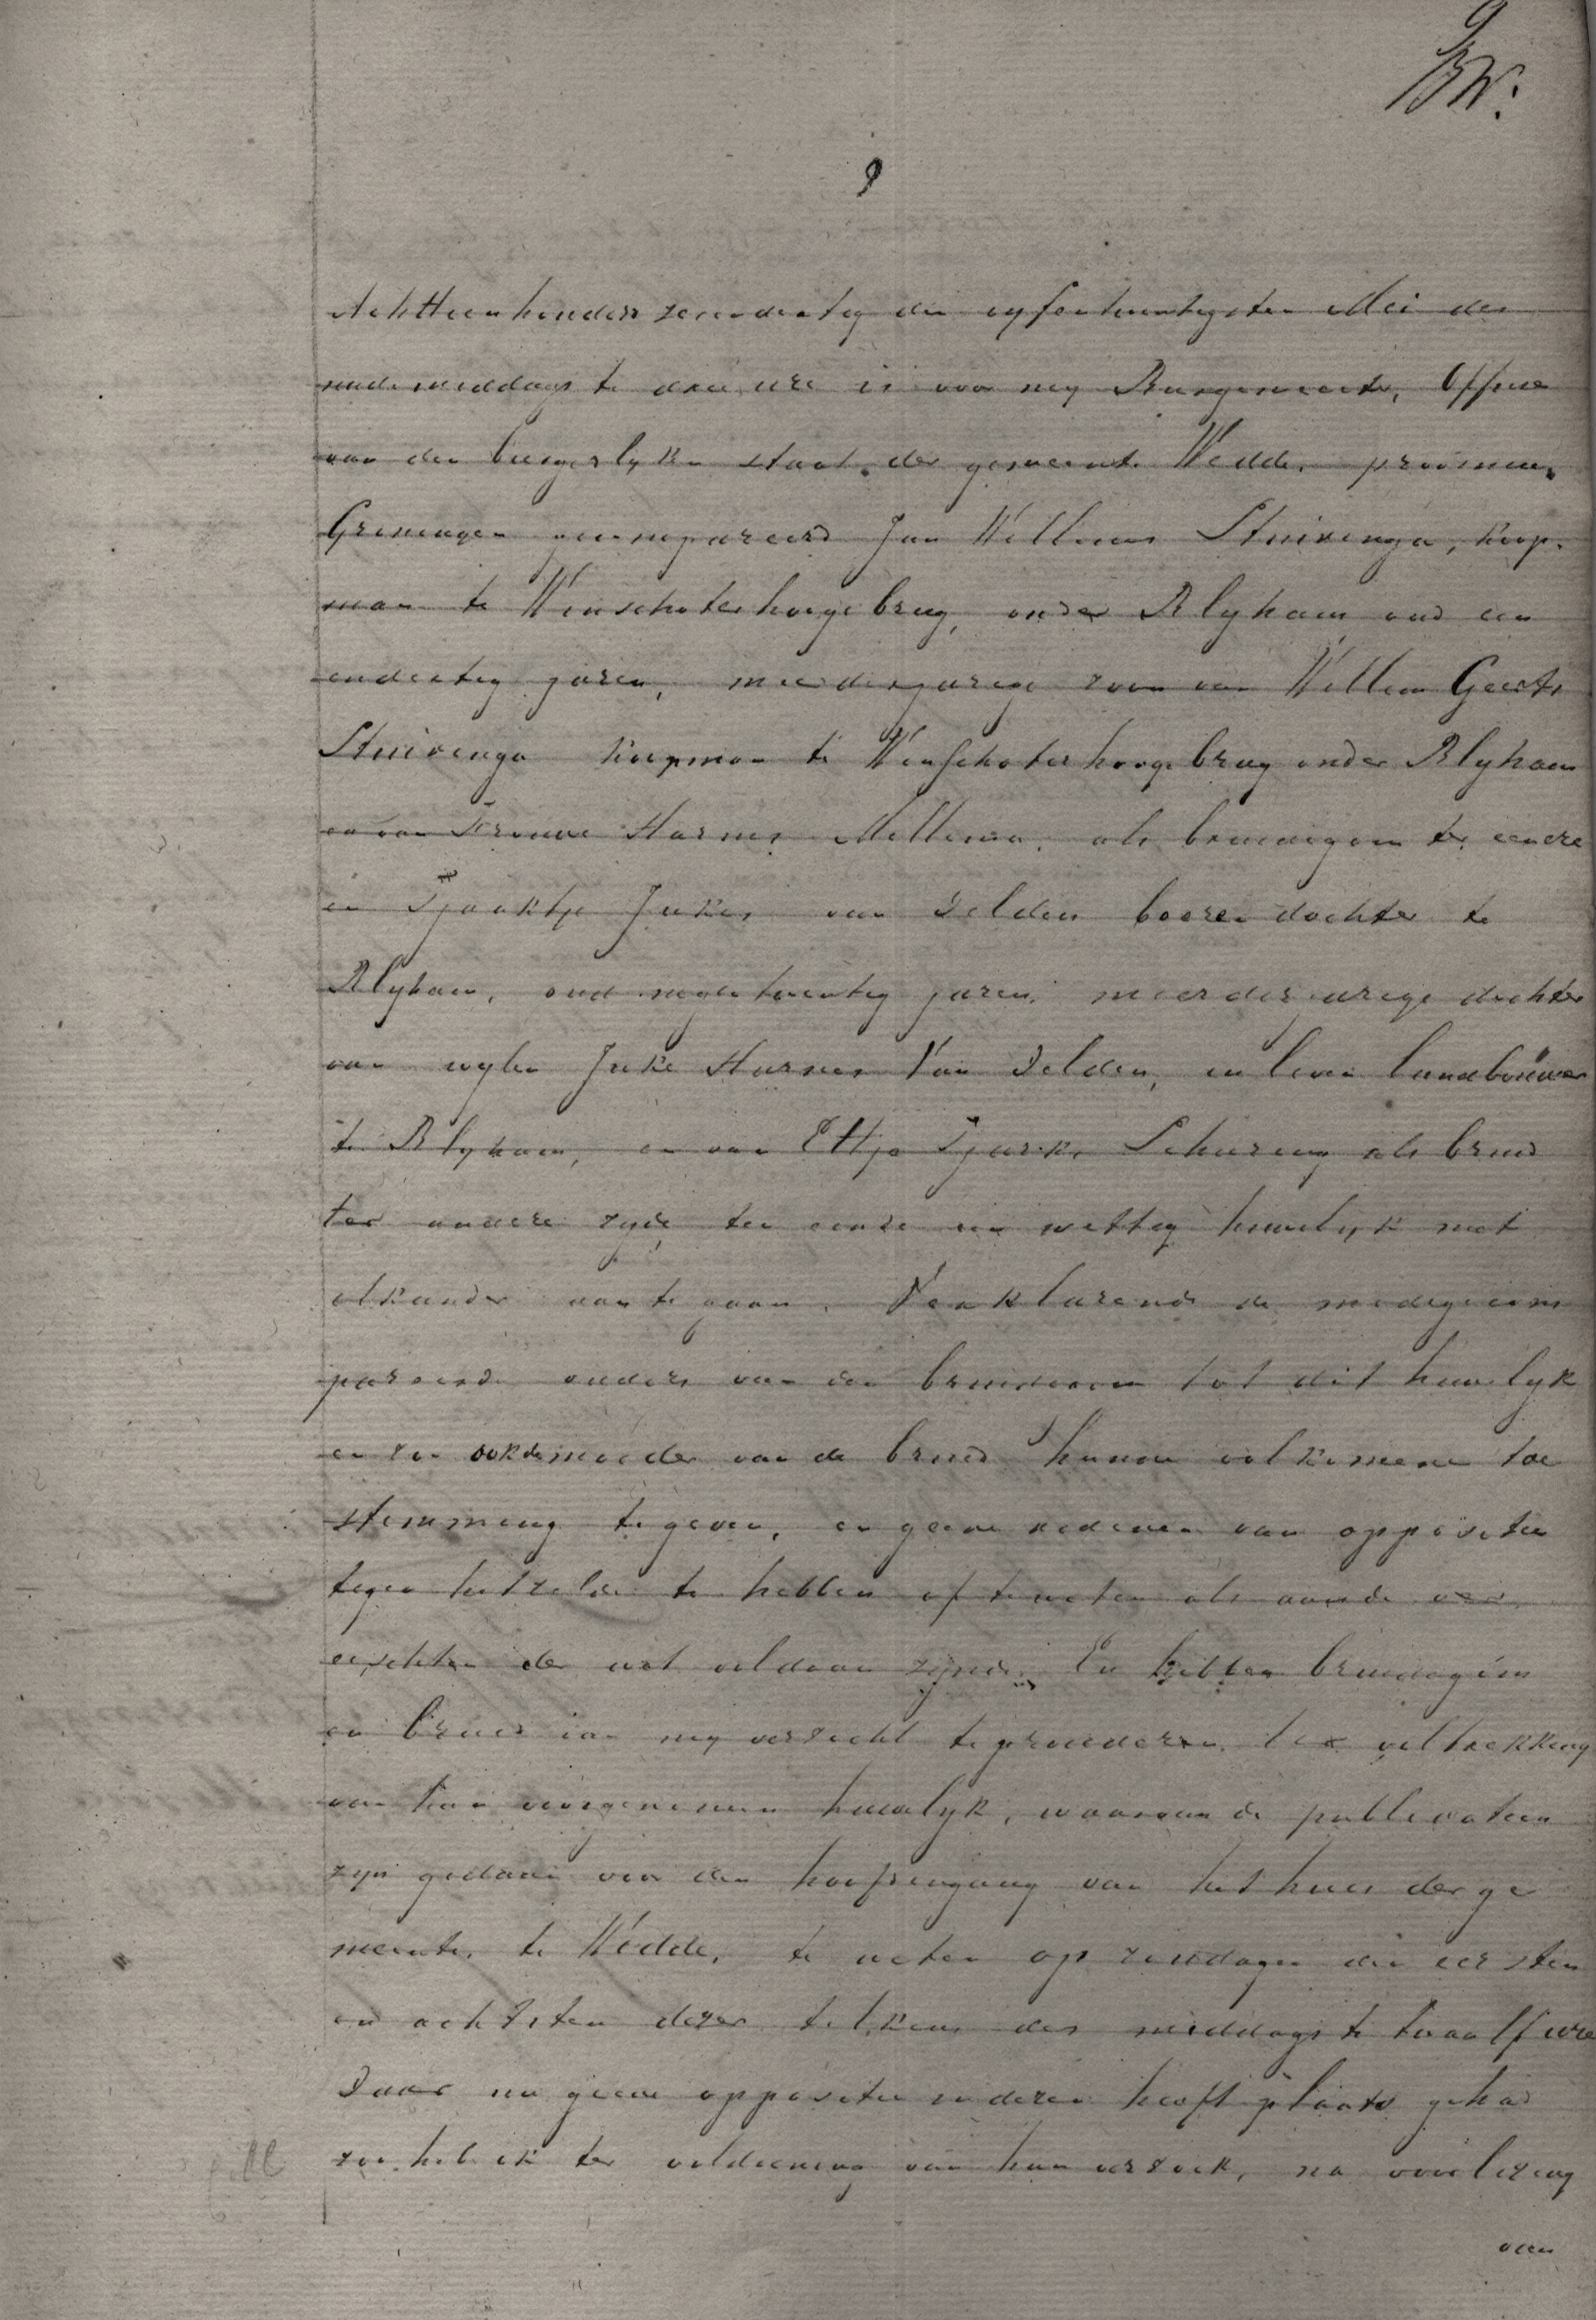 9
BW.
9
Achttienhonderd zevendertig den vyfentwintigsten Mei des
namiddags te drie ure is voor my Burgemeester, Officier
van den burgerlyken staat der gemeente Wedde, provincie
Groningen gecompareerd Jan Willems Stuivenga, koop-
man te Winschoterhoogebrug, onder Blyham oud een
endertig jaren, meerderjarige zoon van Willem Geerts
Stuivenga koopman te Winschoterhoogebrug onder Blyham
en van Harms Mellema, als bruidegom ter eenre
en Tjaaktje Jukes van Delden boeren dochter te
Blyham, oud negentwentig jaren, meerderjarige dochter
van wylen Juke Harmes Van Delden, in leven landbouwer
te Blyham, en van Ettje Tjarks Schuring als bruid
ter andere zyde ten einde een wettig huwelyk met
elkander aan te gaan. Verklarende de medegecom
pareerde ouders van den bruidegom tot dit huwelyk
en zoo ook de moeder van de bruid hunne volkomene toe
stemming te geven, en geene redenen van oppositie
tegen hetzelve te hebben of te weten als aan de ver
eischten der wet voldaan zynde. En hebben bruidegom
en bruid van my verzocht te procederen ter voltrekking
van hun voorgenomen huwelyk, waarvan de publicatien
zyn gedaan voor den hoofdingang van het huis der ge
meente te Wedde, te weten op zondagen den eersten
en achtsten dezer telkens des middags te twaalf ure
Daar nu geene oppositie tegen heeft plaats gehad
zoo heb ik ter voldoening van hun verzoek, na voorlezing
van